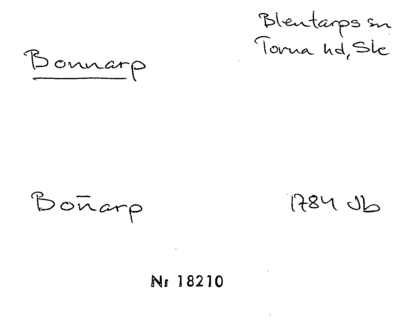 Bonnarp
Blentarps sn
Torna hd, Sk
Bon̄arp
1784 Jb
Nr 18210